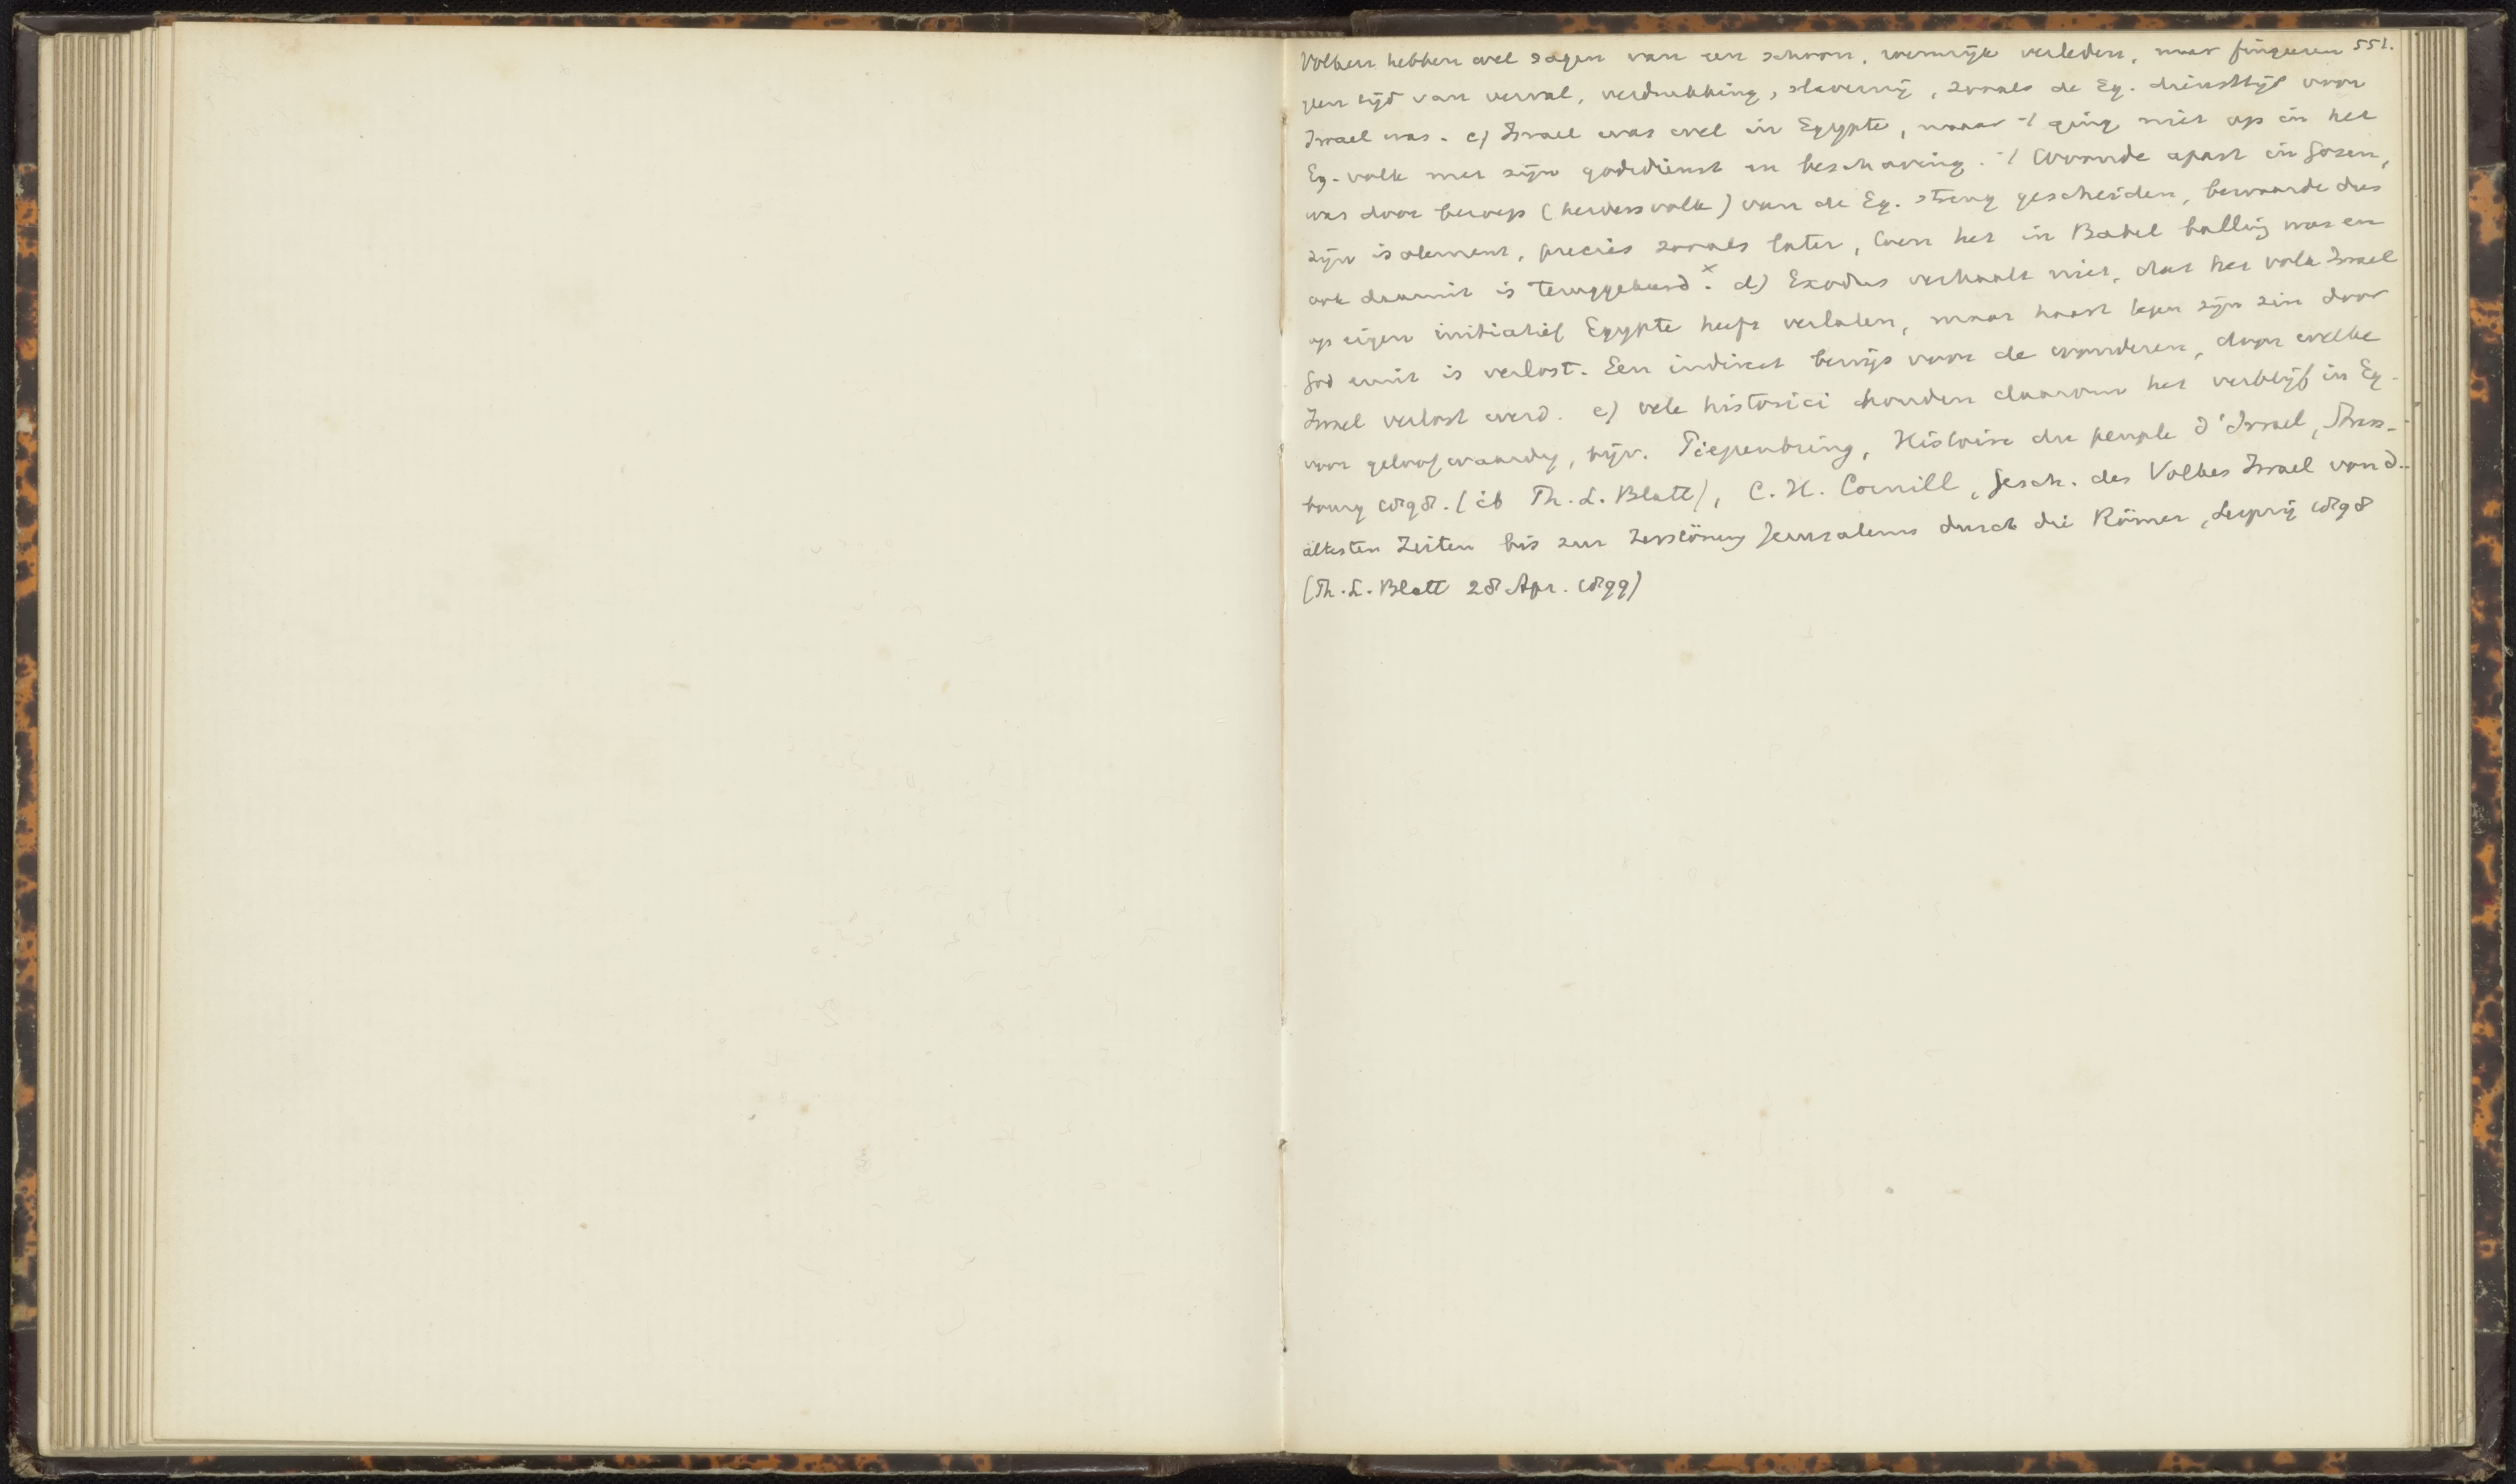 Volken hebben wel sagen van een schoon, roemrijk verleden, maar fingeeren 551.
geen tijd van verval, verdrukking, slavernij, zooals de Eg. diensttijd voor
Israel was. c) Israel was wel in Egypte, maar -/ ging niet op in het
Eg. volk met zijn godsdienst en beschaving. -/ Woonde apart in Gosen,
was door beroep (herdersvolk) van de Eg. streng gescheiden, bewaarde dus
zijn isolement, precies zooals later, toen het in Babel balling was en
ook daaruit is teruggekeerd. x d) Exodus verhaalt niet, dat het volk Israel
op eigen initiatief Egypte heeft verlaten, maar haast tegen zijn zin door
God eruit is verlost. Een indirect bewijs voor de wonderen, door welke
Israel verlost werd. e) vele historici houden daarom het verblijf in Eg.
voor geloofwaardig, bijv. Piepenbring, Histoire du peuple d'Israel, Stras-
bourg 1898. (ib Th. L. Blatt), C. H. Cornill, Gesch. des Volkes Israel von d.
ältesten Zeiten bis zur Zerstörung Jerusalems durch die Römer, Leipzig 1898
(Th. L. Blatt 28 Apr. 1899)